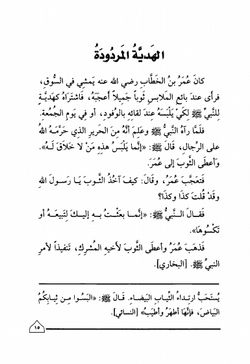 الهَديَّةُ المَردُودَةُ
كانَ عُمَرُ بنُ الخَطَّابِ رضي الله عنه يَمشِي في السُّوقِ،
فرأى عندَ بائعِ المَلابسِ ثَوباً جَميلاً أعجَبَهُ، فاشتَراهُ كهَديَّةٍ
للنَّبيِّ ﷺ لكَي يَلْبَسَهُ عندَ لقائهِ بالوُفودِ، أو في يَومِ الجُمعةِ.
فلَمَّا رآهُ النَّبيُّ ﷺ وعَلِمَ أنَّهُ منَ الحَريرِ الذي حَرَّمَهُ اللهُ
على الرِّجالِ، قالَ ﷺ: «إنَّما يَلْبَسُ هذِهِ مَنْ لا خَلاقَ لَهُ».
وأعطَى الثَّوبَ إلى عُمَرَ.
فتَعجَّبَ عُمَرُ، وقالَ: كيفَ آخُذُ الثَّوبَ يا رَسولَ اللهِ
وقَد قُلتَ كَذا وكَذا؟
فقالَ النَّبيُّ ﷺ: «إنَّما بَعَثْتُ بهِ إليكَ لتَبيعَهُ أو
تَكْسُوَها».
فذَهَبَ عُمَرُ وأعطَى الثَّوبَ لأخيهِ المُشركِ، تَنفيذاً لأمرِ
النَّبيِّ ﷺ. [البخاري].
يُستَحَبُّ ارتِداءُ الثِّيابِ البَيضاءِ. قَالَ ﷺ: «البَسُوا مِن ثِيابِكُمُ
البَيَاضَ، فإنَّها أطهَرُ وأطيَبُ» [النسائي].
١٥